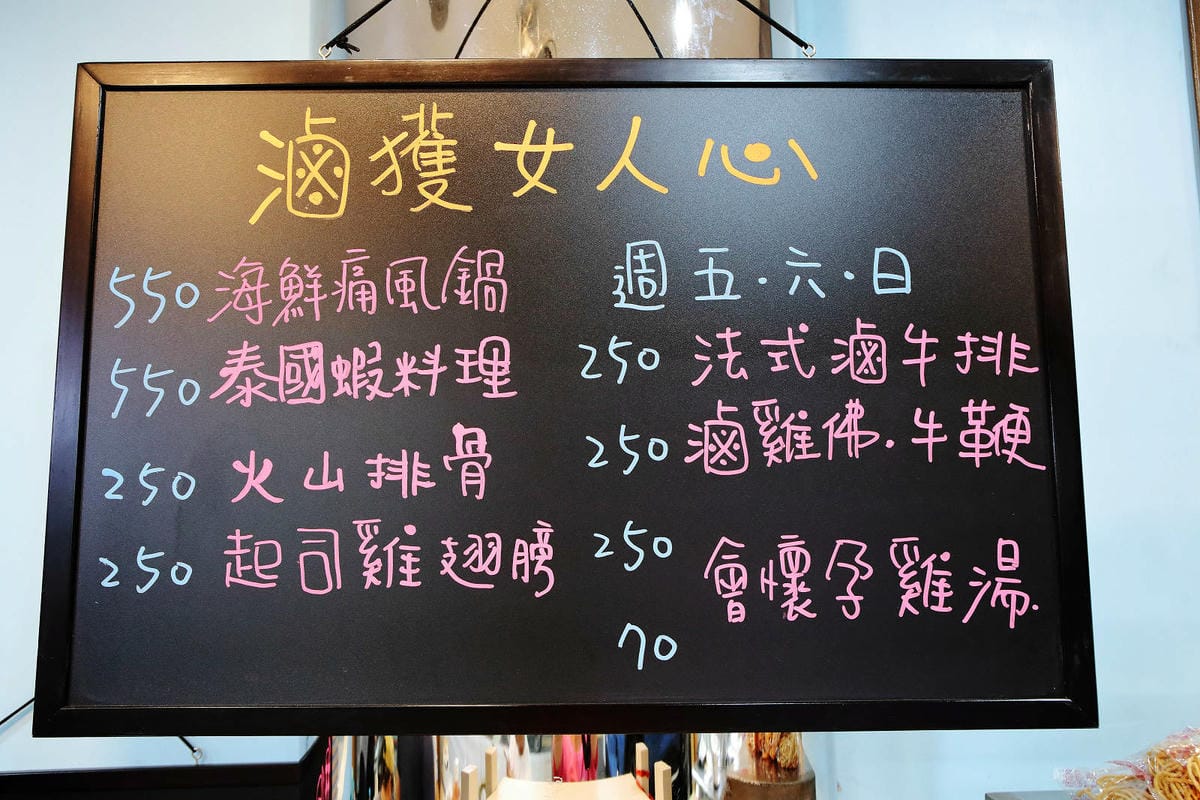 滷獲女人心
550 海鮮痛風鍋
550 泰國蝦料理
250 火山排骨
250 起司雞翅膀
週五.六.日
250 法式滷牛排
250 滷雞佛.牛鞭
250 會懷孕雞湯.
70